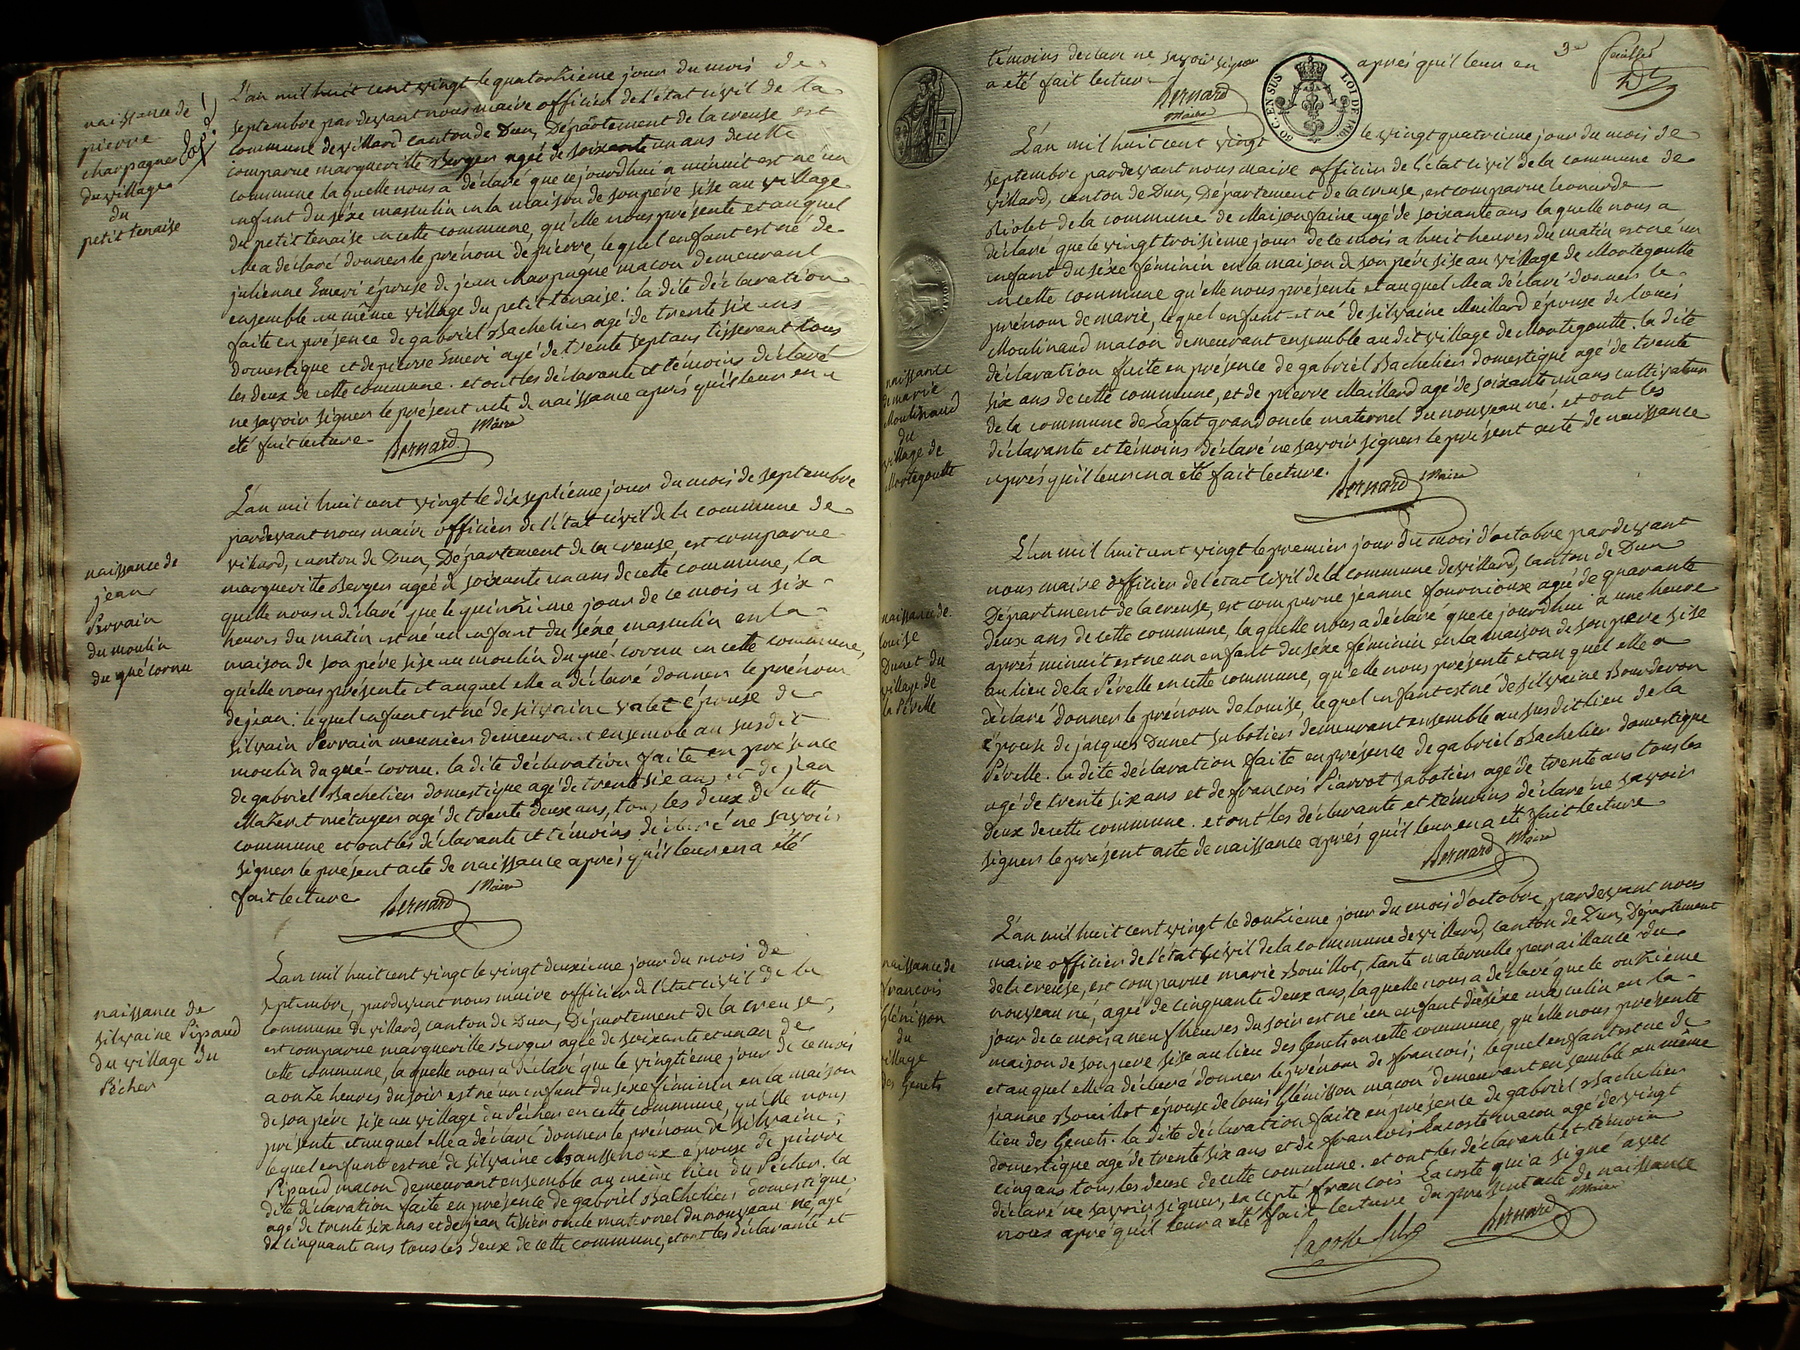 naissance de
pierre
charpagne
du village
du
petit tenaise
L'an mil huit cent vingt le quatorzieme jour du mois de
septembre pardevant nous maire officier de l'état civil de la
commune de villard canton de Dun, Département de la creuse est
comparue margueritte Berger agée de soixante un ans de cette
commune la quelle nous a déclaré que ce jourd'hui a minuit est né un
enfant du séxe masculin en la maison de son pére sise au village
du petit tenaise en cette commune, qu'elle nous présente et au quel
elle a déclaré donner le prénom de pierre, le quel enfant est né de
julienne Emeri épouse de jean charpagne macon demeurant
ensemble au même village du petit tenaise. la dite déclaration
faite en présence de gabriel Bachelier agé de trente six ans
domestique et de pierre Emeri agé de trente sept ans tisserant tous
les deux de cette commune. et ont les déclarante et témoins déclaré
ne savoir signer le présent acte de naissance aprés qu'il leur en a
été fait lecture
Bernard Maire
naissance de
jean
Perrain
du moulin
du gué cornu
L'an mil huit cent vingt le dix septiéme jour du mois de septembre
pardevant nous maire officier de l'état civil de la commune de
villard, canton de Dun, Département de la creuse, est comparue
margueritte Berger agée de soixante un ans de cette commune, la
quelle nous a déclaré que le quinzieme jour de ce mois a six
heures du matin est né un enfant du séxe masculin en la
maison de son pére sise au moulin du gué-cornu en cette commune,
qu'elle nous présente et au quel elle a déclaré donner le prénom
de jean: le quel enfant est né de silvaine valet épouse de
silvain Perrain meunier demeurant ensemble au susdit
moulin du gué-cornu. la dite déclaration faite en présence
de gabriel Bachelier domestique agé de trente six ans et de jean
métayer agé de trente deux ans, tous les deux de cette
commune et ont les déclarante et témoins déclaré ne savoir
signer le présent acte de naissance aprés qu'il leur en a été
fait lecture
Bernard Maire
naissance de
silvaine Pipaud
du village du
Pécher
L'an mil huit cent vingt le vingt deuxieme jour du mois de
septembre, pardevant nous maire officier de l'état civil de la
commune de villard, canton de Dun, Département de la creuse,
est comparue margueritte Berger agée de soixante et un an de
cette commune, la quelle nous a déclaré que le vingtieme jour de ce mois
a onze heures du soir est né un enfant du séxe féminin en la maison
de son pére sise au village du Pécher en cette commune, qu'elle nous
présente et au quel elle a déclaré donner le prénom de silvaine;
le quel enfant est né de silvaine épouse de pierre
Pipaud macon demeurant ensemble au même lieu du Pécher. la
dite déclaration faite en présence de gabriel Bachelier domestique
agé de trente six ans et de jean oncle maternel du nouveau né, agé
de cinquante ans tous les deux de cette commune, et ont les déclarante et
témoins déclaré ne savoir signer aprés qu'il leur en
a été fait lecture
Bernard
maire
3e feuillet
L'an mil huit cent vingt le vingt quatrieme jour du mois de
septembre pardevant nous maire officier de l'état civil de la commune de
villard, canton de Dun, Département de la creuse, est comparue leonarde
Riolet de la commune de Maisonfaine agé de soixante ans laquelle nous a
déclaré que le vingt troisieme jour de ce mois a huit heures du matin est né un
enfant du séxe féminin en la maison de son pére sise au village de Montegoutte
en cette commune qu'elle nous présente et au quel elle a déclaré donner le
prénom de marie, le quel enfant est né de silvaine Maillard épouse de louis
Moulinaud macon demeurant ensemble au dit village de Montegoutte. la dite
déclaration faite en présence de gabriel Bachelier domestique agé de trente
six ans de cette commune, et de pierre Maillard agé de soixante un ans cultivateur
de la commune de Lafat grand oncle maternel du nouveau né. et ont les
déclarante et témoins déclaré ne savoir signer le présent acte de naissance
aprés qu'il leur en a été fait lecture.
Bernard Maire
naissance
de marie
Moulinaud
du
village de
Montegoutte
L'an mil huit cent vingt le premier jour du mois d'octobre pardevant
nous maire officier de l'état civil de la commune de villard, canton de Dun
Département de la creuse, est comparue jeanne fournioux agé de quarante
deux ans de cette commune, la quelle nous a déclaré que ce jourd'hui a une heure
aprés minuit est né un enfant du séxe féminin en la maison de son pere sise
au lieu de la Pérelle en cette commune, qu'elle nous présente et au quel elle a
déclaré donner le prénom de louise, le quel enfant est né de silvaine Bourderon
épouse de jacques Dunet sabotier demeurant ensemble au susdit lieu de la
Pérelle. la dite déclaration faite en présence de gabriel Bachelier domestique
agé de trente six ans et de francois Pierrot sabotier agé de trente ans tous les
deux de cette commune. et ont les déclarante et témoins déclaré ne savoir
signer le présent acte de naissance aprés qu'il leur en a été fait lecture
Bernard Maire
naissance de
louise
Dunet du
village de
la Pérelle
L'an mil huit cent vingt le douzieme jour du mois d'octobre, pardevant nous
maire officier de l'état civil de la commune de villard, canton de Dun, Département
de la creuse, est comparue marie Bouillot, tante maternelle du
nouveau né, agée de cinquante deux ans, la quelle nous a déclaré que le onzieme
jour de ce mois a neuf heures du soir est né un enfant du séxe masculin en la
maison de son pere sise au lieu des Genets en cette commune, qu'elle nous présente
et au quel elle a déclaré donner le prénom de francois; le quel enfant est né de
jeanne Bouillot épouse de louis Glénisson macon demeurant ensemble au même
lieu des Genets. la dite déclaration faite en présence de gabriel Bachelier
domestique agé de trente six ans et de francois Lacoste macon agé de vingt
cinq ans tous les deux de cette commune. et ont les déclarante et témoin
déclaré ne savoir signer, excepté francois Lacoste qui a signé avec
nous aprés qu'il leur a été fait lecture du présent acte de naissance
Lacoste fils Bernard Maire
naissance de
francois
Glénisson
du
village
des Genets